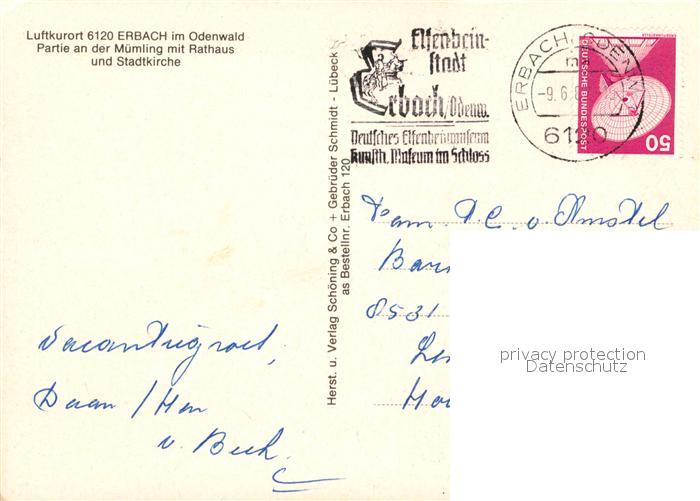 Luftkurort 6120 ERBACH im Odenwald
Partie an der Mümling mit Rathaus
und Stadtkirche
Elfenbein-
stadt
Erbach/Odenw.
Deutsches Elfenbeinmuseum
Kunsth. Museum im Schloss
ERBACH, ODENW
-9.6.
6120
DEUTSCHE BUNDESPOST
50
Herst. u. Verlag Schöning & Co + Gebrüder Schmidt - Lübeck
as Bestellnr. Erbach 120
Fam. P.C. v. Amstel
8531
privacy protection
Datenschutz
Vacantiegroet,
Daan / Han
v. Beek